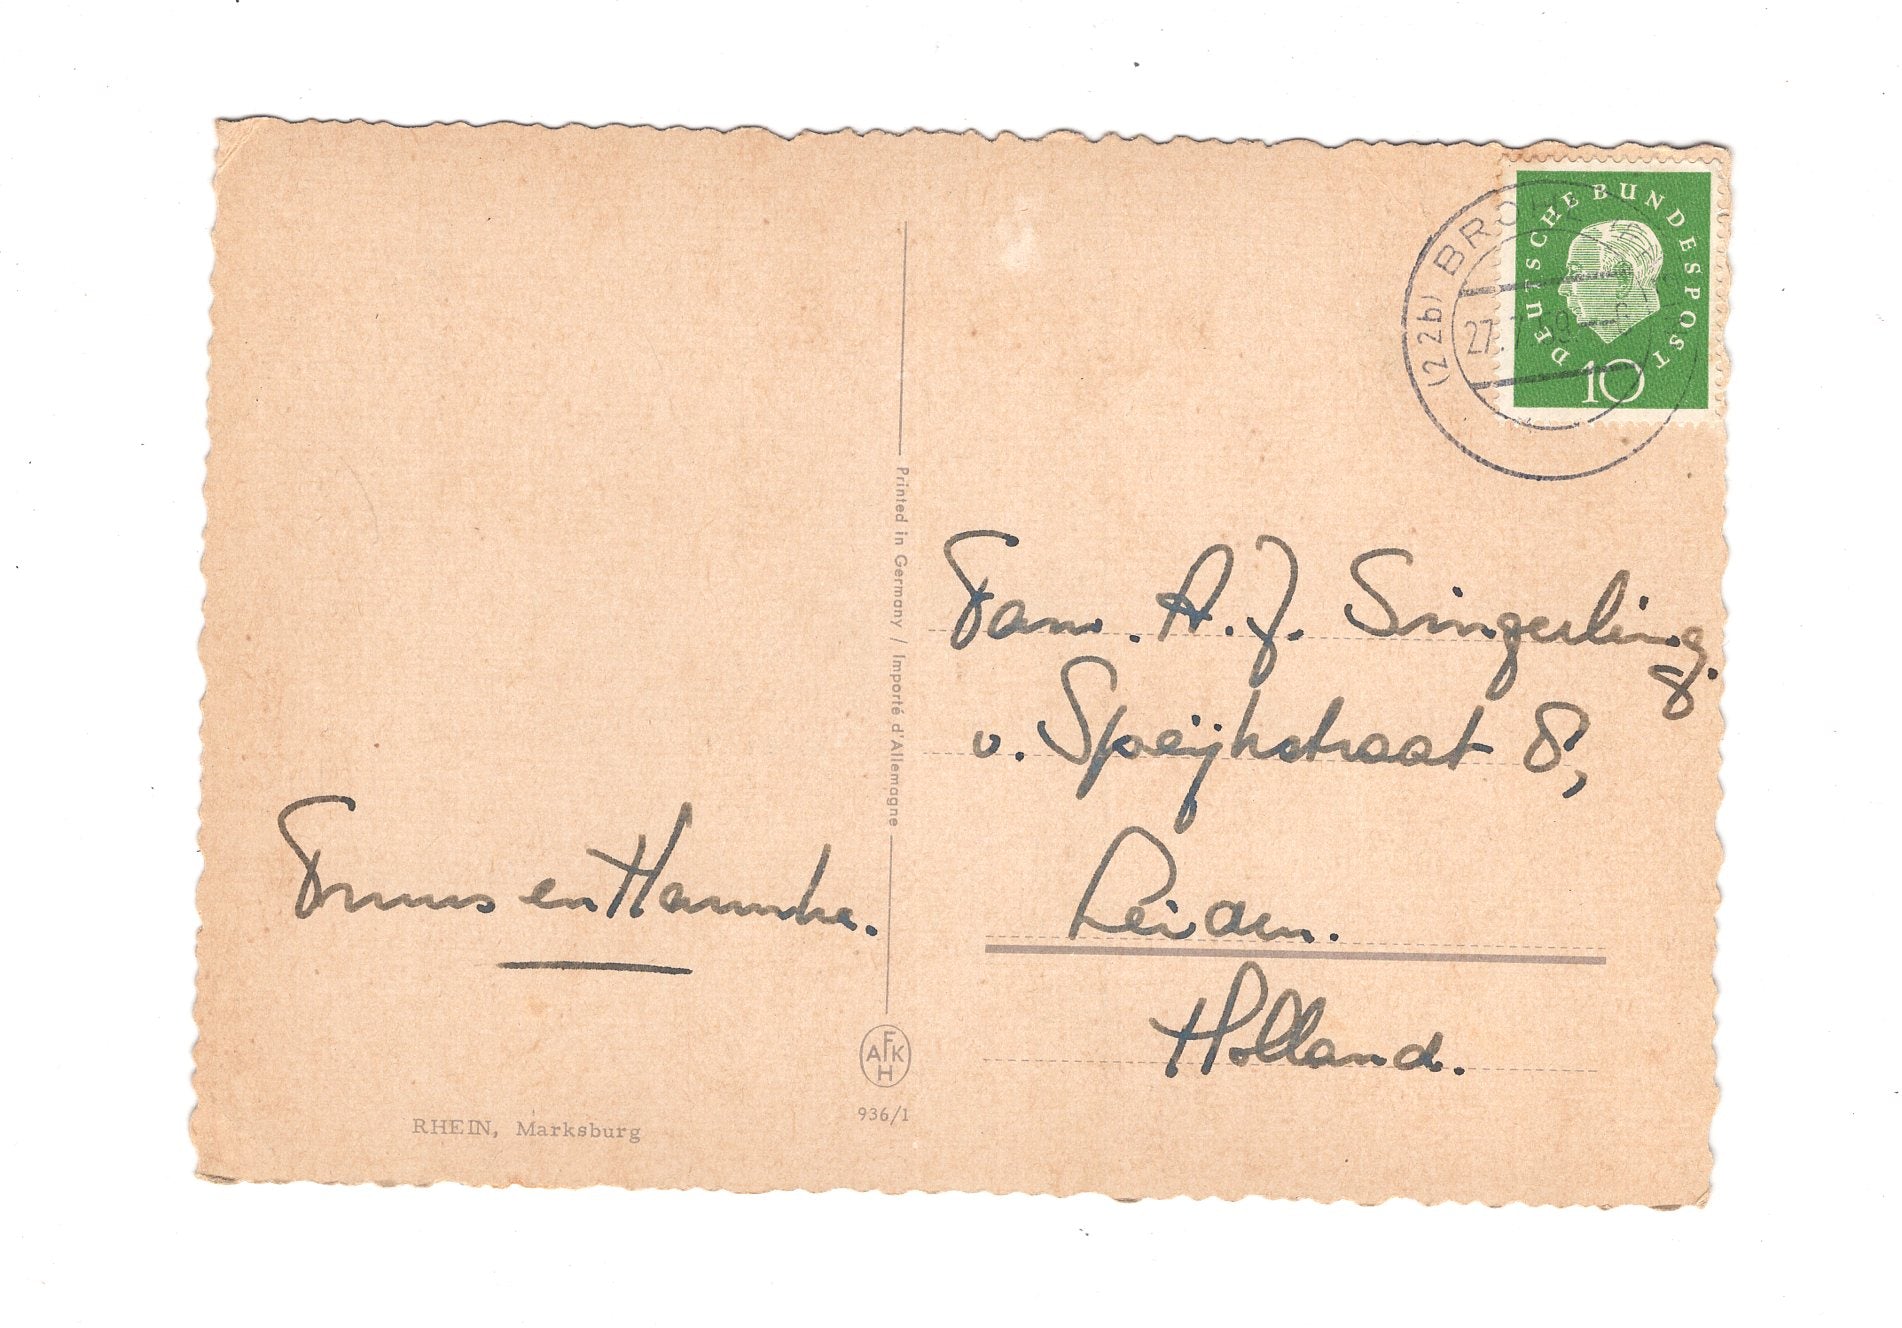 DEUTSCHE BUNDESPOST
10
(22b) BROHL
27.7.59
Printed in Germany / Importé d'Allemagne
Fam. A. J. Singerling.
v. Speijkstraat 8,
Leiden.
Holland.
Truus en Hanneke.
AFKH
936/1
RHEIN, Marksburg